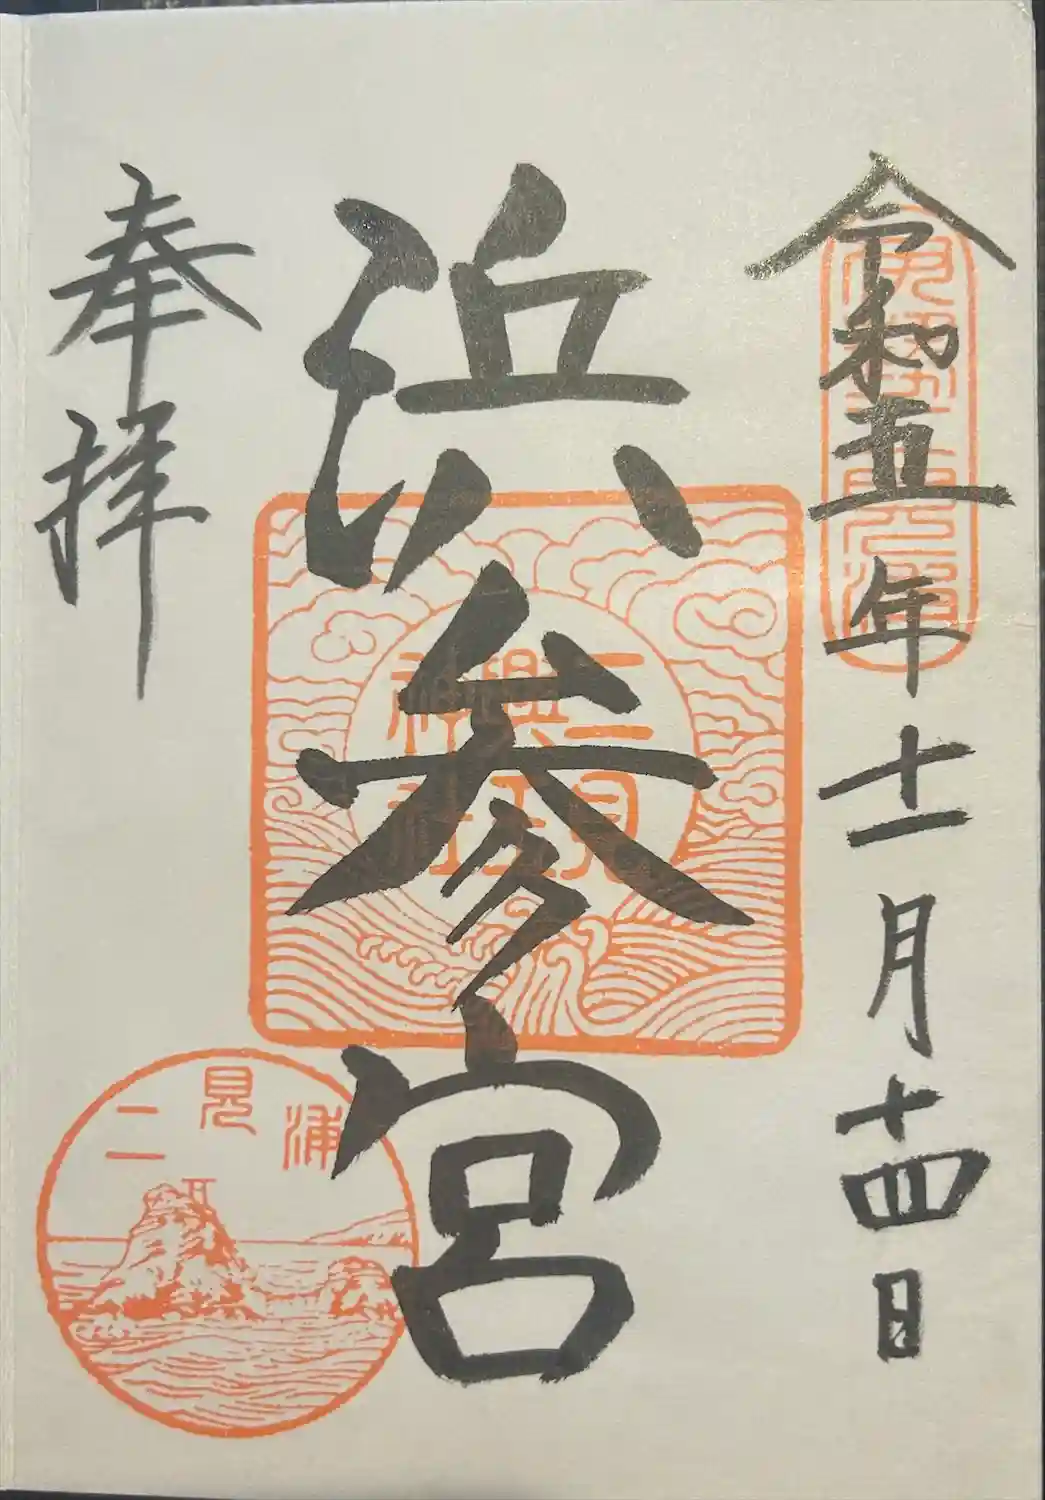 令和五年十一月十四日
伊勢二見浦
浜参宮
二見
興玉
神社
奉拝
二見浦